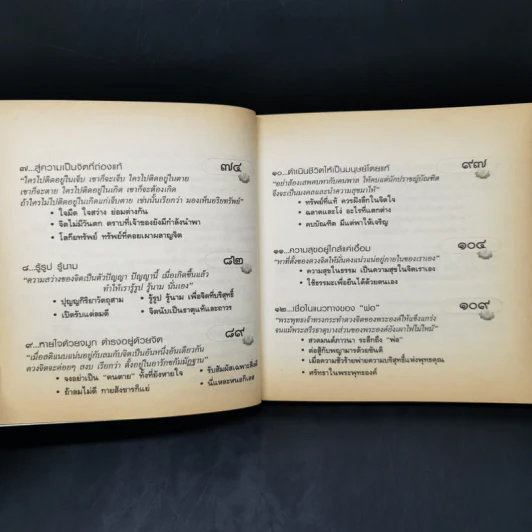 ๗...สู่ความเป็นจิตที่ถ่องแท้ ๗๔
"ใครไปติดอยู่ในเจ็บ เขาก็จะเจ็บ ใครไปติดอยู่ในตาย
เขาก็จะตาย ใครไปติดอยู่ในเกิด เขาก็จะต้องเกิด
ถ้าใครไม่ไปติดอยู่ในเกิดแก่เจ็บตาย เช่นนั้นเรียกว่า มองเห็นอริยทรัพย์"
• ใจมืด ใจสว่าง ย่อมต่างกัน
• จิตไม่มีวันตก ตราบที่เจ้าของยังมีกำลังนำพา
• โลกียทรัพย์ ทรัพย์ที่คอยเผาผลาญจิต
๘...รู้รูป รู้นาม ๘๒
"ความสว่างของจิตเป็นตัวปัญญา ปัญญานี้ เมื่อเกิดขึ้นแล้ว
ทำให้เรารู้รูป รู้นาม นั่นเอง"
• ปุญญกิริยาวัตถุสาม • รู้รูป รู้นาม เพื่อจิตที่บริสุทธิ์
• เปิดรับแต่ลมดี • จิตนับเป็นธาตุแท้และถาวร
๙...หายใจด้วยจมูก ดำรงอยู่ด้วยจิต ๘๙
"เมื่อสติแนบแน่นอยู่กับลมกับจิตเป็นอันหนึ่งอันเดียวกัน
ดวงจิตจะค่อยๆ สงบ เรียกว่า ตั้งอยู่ในอารักขกัมมัฏฐาน"
• จงอย่าเป็น "คนตาย" ทั้งที่ยังหายใจ • รับสัมผัสเฉพาะสิ่งดี
• ถ้าลมไม่ดี กายสังขารก็แย่ • นี่แหละหนอกิเลส
๑๐...ดำเนินชีวิตให้เป็นมนุษย์โดยแท้ ๙๗
"อย่าส้องเสพคบหากับคนพาล ให้คบแต่นักปราชญ์บัณฑิต
จึงจะเป็นมงคลและนำความสุขมาให้"
• ทรัพย์ที่แท้ ควรฝังลึกในจิตใจ
• ฉลาดและโง่ อะไรที่แตกต่าง
• คบบัณฑิต มีแต่พาให้เจริญ
๑๑...ความสุขอยู่ใกล้แค่เอื้อม ๑๐๔
"หาที่ตั้งของดวงจิตให้มั่นคงแน่วแน่อยู่ภายในของเราเอง"
• ความสุขในธรรม เป็นความสุขในจิตเราเอง
• ใช้ธรรมะเพื่อยืนได้ด้วยตนเอง
๑๒...เชื่อในแนวทางของ "พ่อ" ๑๐๙
"พระพุทธเจ้าทรงกระทำดวงจิตของพระองค์ให้แข็งแกร่ง
จนแม้พระสรีรธาตุบางส่วนของพระองค์ยังเผาไฟไม่ไหม้"
• สวดมนต์ภาวนา ระลึกถึง "พ่อ"
• ต่อสู้กับพญามารด้วยขันติ
• เมื่อความชั่วร้ายพ่ายความบริสุทธิ์แห่งพุทธคุณ
• ศรัทธาในพระพุทธองค์